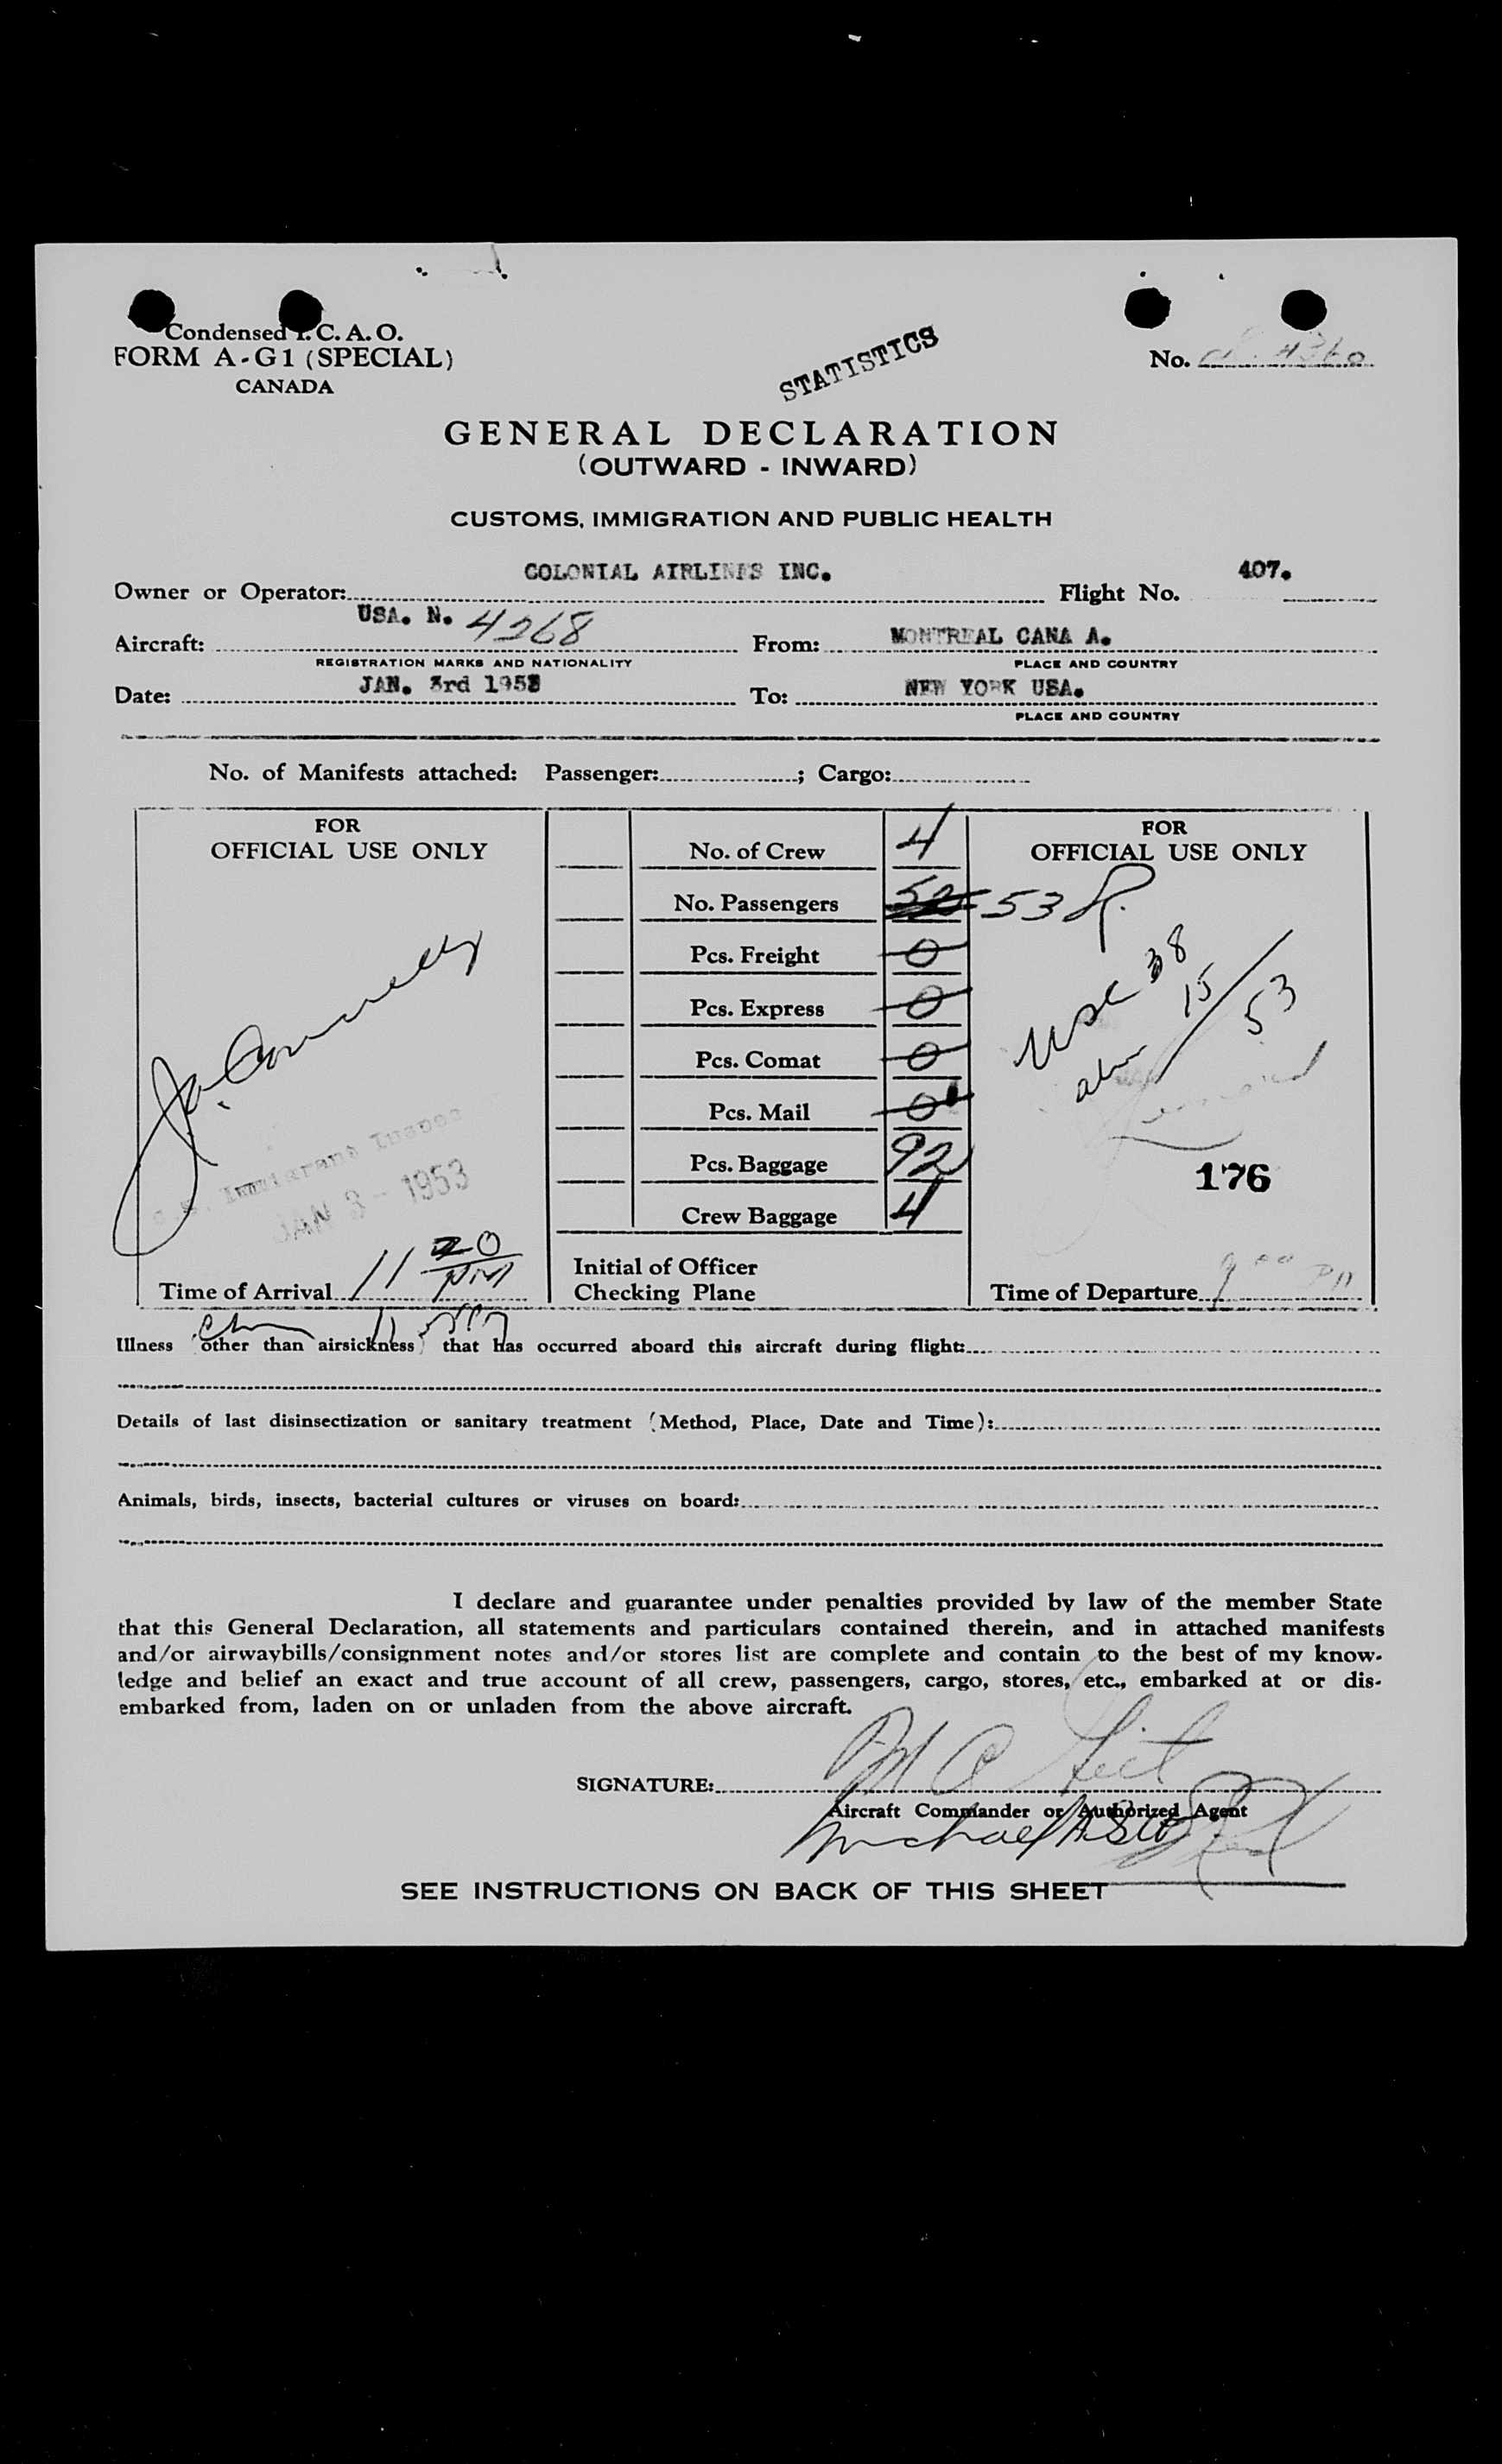 Condensed I. C. A. O.
FORM A-G1 (SPECIAL)
CANADA
STATISTICS
No.
GENERAL DECLARATION
(OUTWARD - INWARD)
CUSTOMS, IMMIGRATION AND PUBLIC HEALTH
Owner or Operator: COLONIAL AIRLINES INC. Flight No. 407.
Aircraft: USA. N. 4268 From: MONTREAL CANA A.
REGISTRATION MARKS AND NATIONALITY PLACE AND COUNTRY
Date: JAN. 3rd 1953 To: NEW YORK USA.
PLACE AND COUNTRY
No. of Manifests attached: Passenger: ; Cargo:
FOR
OFFICIAL USE ONLY
No. of Crew 4
No. Passengers 52 53
Pcs. Freight 0
Pcs. Express 0
Pcs. Comat 0
Pcs. Mail 0
Pcs. Baggage 92
Crew Baggage 4
Initial of Officer
Checking Plane
FOR
OFFICIAL USE ONLY
USC 38
15
53
176
Immigrant Inspec
JAN 3 - 1953
Time of Arrival 11 20 PM
Time of Departure 9 00 PM
Illness other than airsickness that has occurred aboard this aircraft during flight:
Details of last disinsectization or sanitary treatment (Method, Place, Date and Time):
Animals, birds, insects, bacterial cultures or viruses on board:
I declare and guarantee under penalties provided by law of the member State
that this General Declaration, all statements and particulars contained therein, and in attached manifests
and/or airwaybills/consignment notes and/or stores list are complete and contain to the best of my know-
ledge and belief an exact and true account of all crew, passengers, cargo, stores, etc., embarked at or dis-
embarked from, laden on or unladen from the above aircraft.
SIGNATURE:
Aircraft Commander or Authorized Agent
Michael
SEE INSTRUCTIONS ON BACK OF THIS SHEET